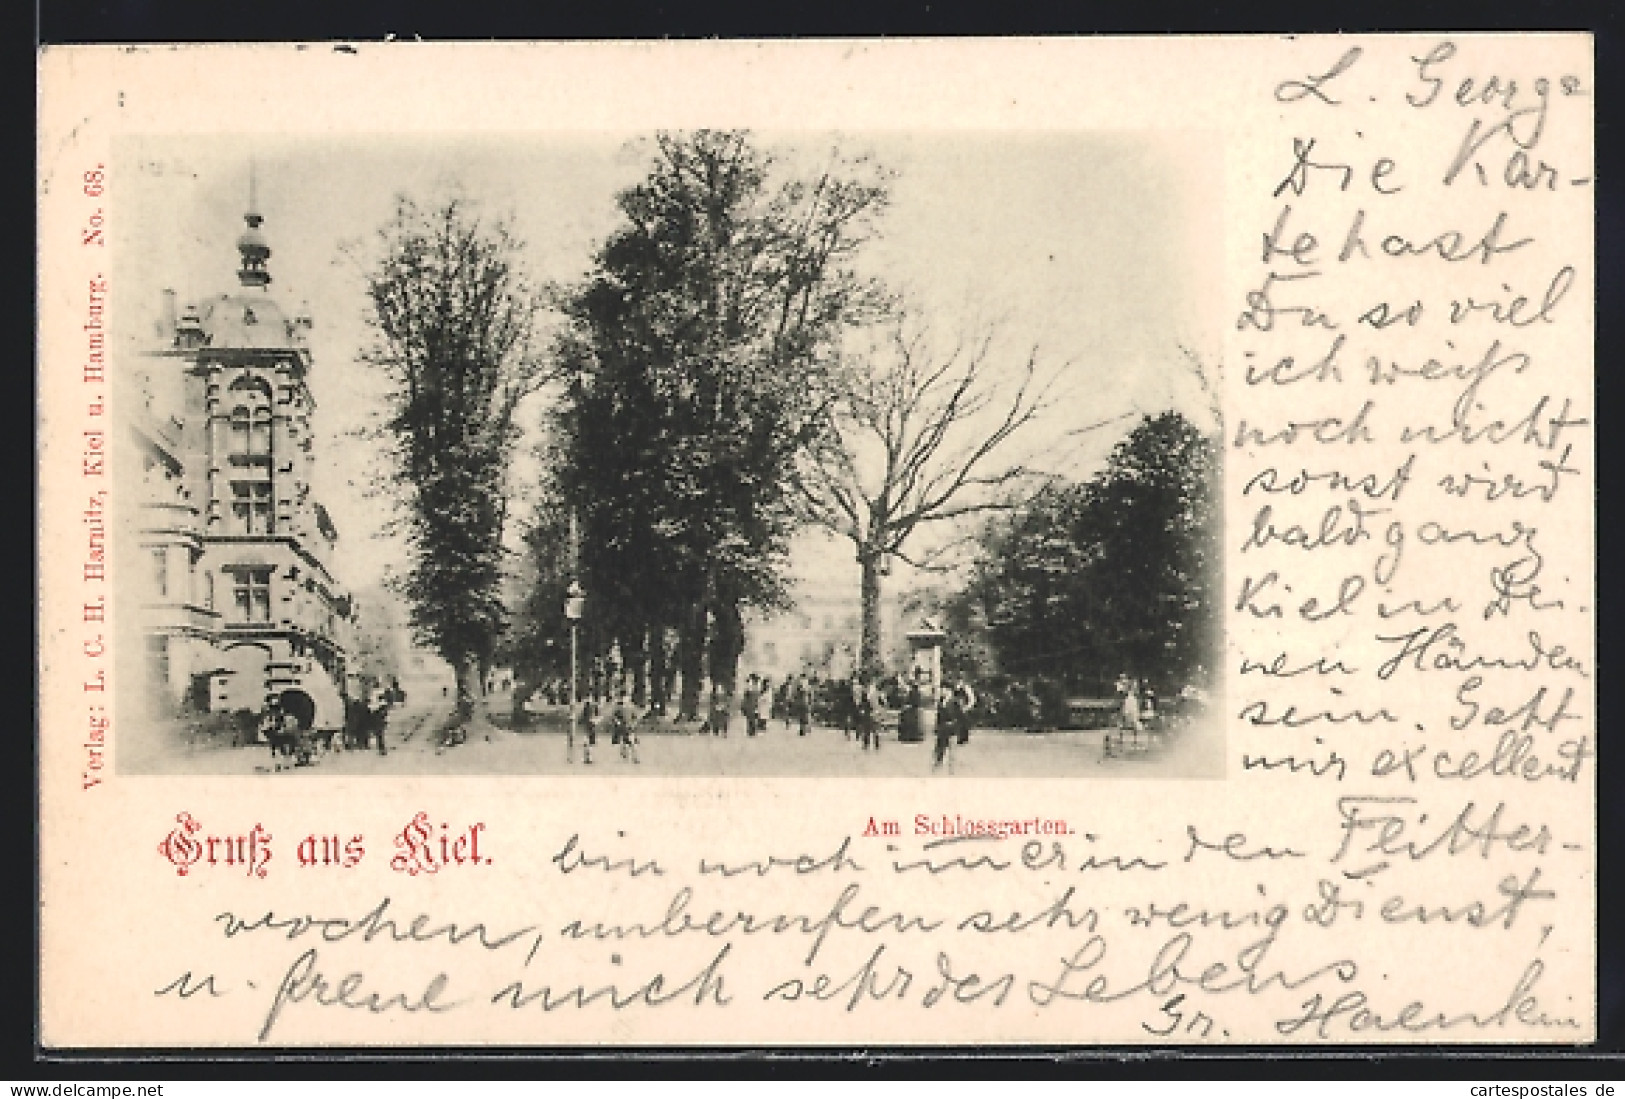 L. George
Die Kar-
te hast
Du so viel
ich weiß
noch nicht,
sonst wird
bald ganz
Kiel in Dei-
nen Händen
sein. Geht
mir excellent
bin noch immer in den Flitter-
wochen, unberufen sehr wenig Dienst,
u. freue mich sehr des Lebens.
Gr. Haenlein
Verlag: L. C. H. Harnitz, Kiel u. Hamburg. No. 68.
Gruß aus Kiel.
Am Schlossgarten.
cartespostales de